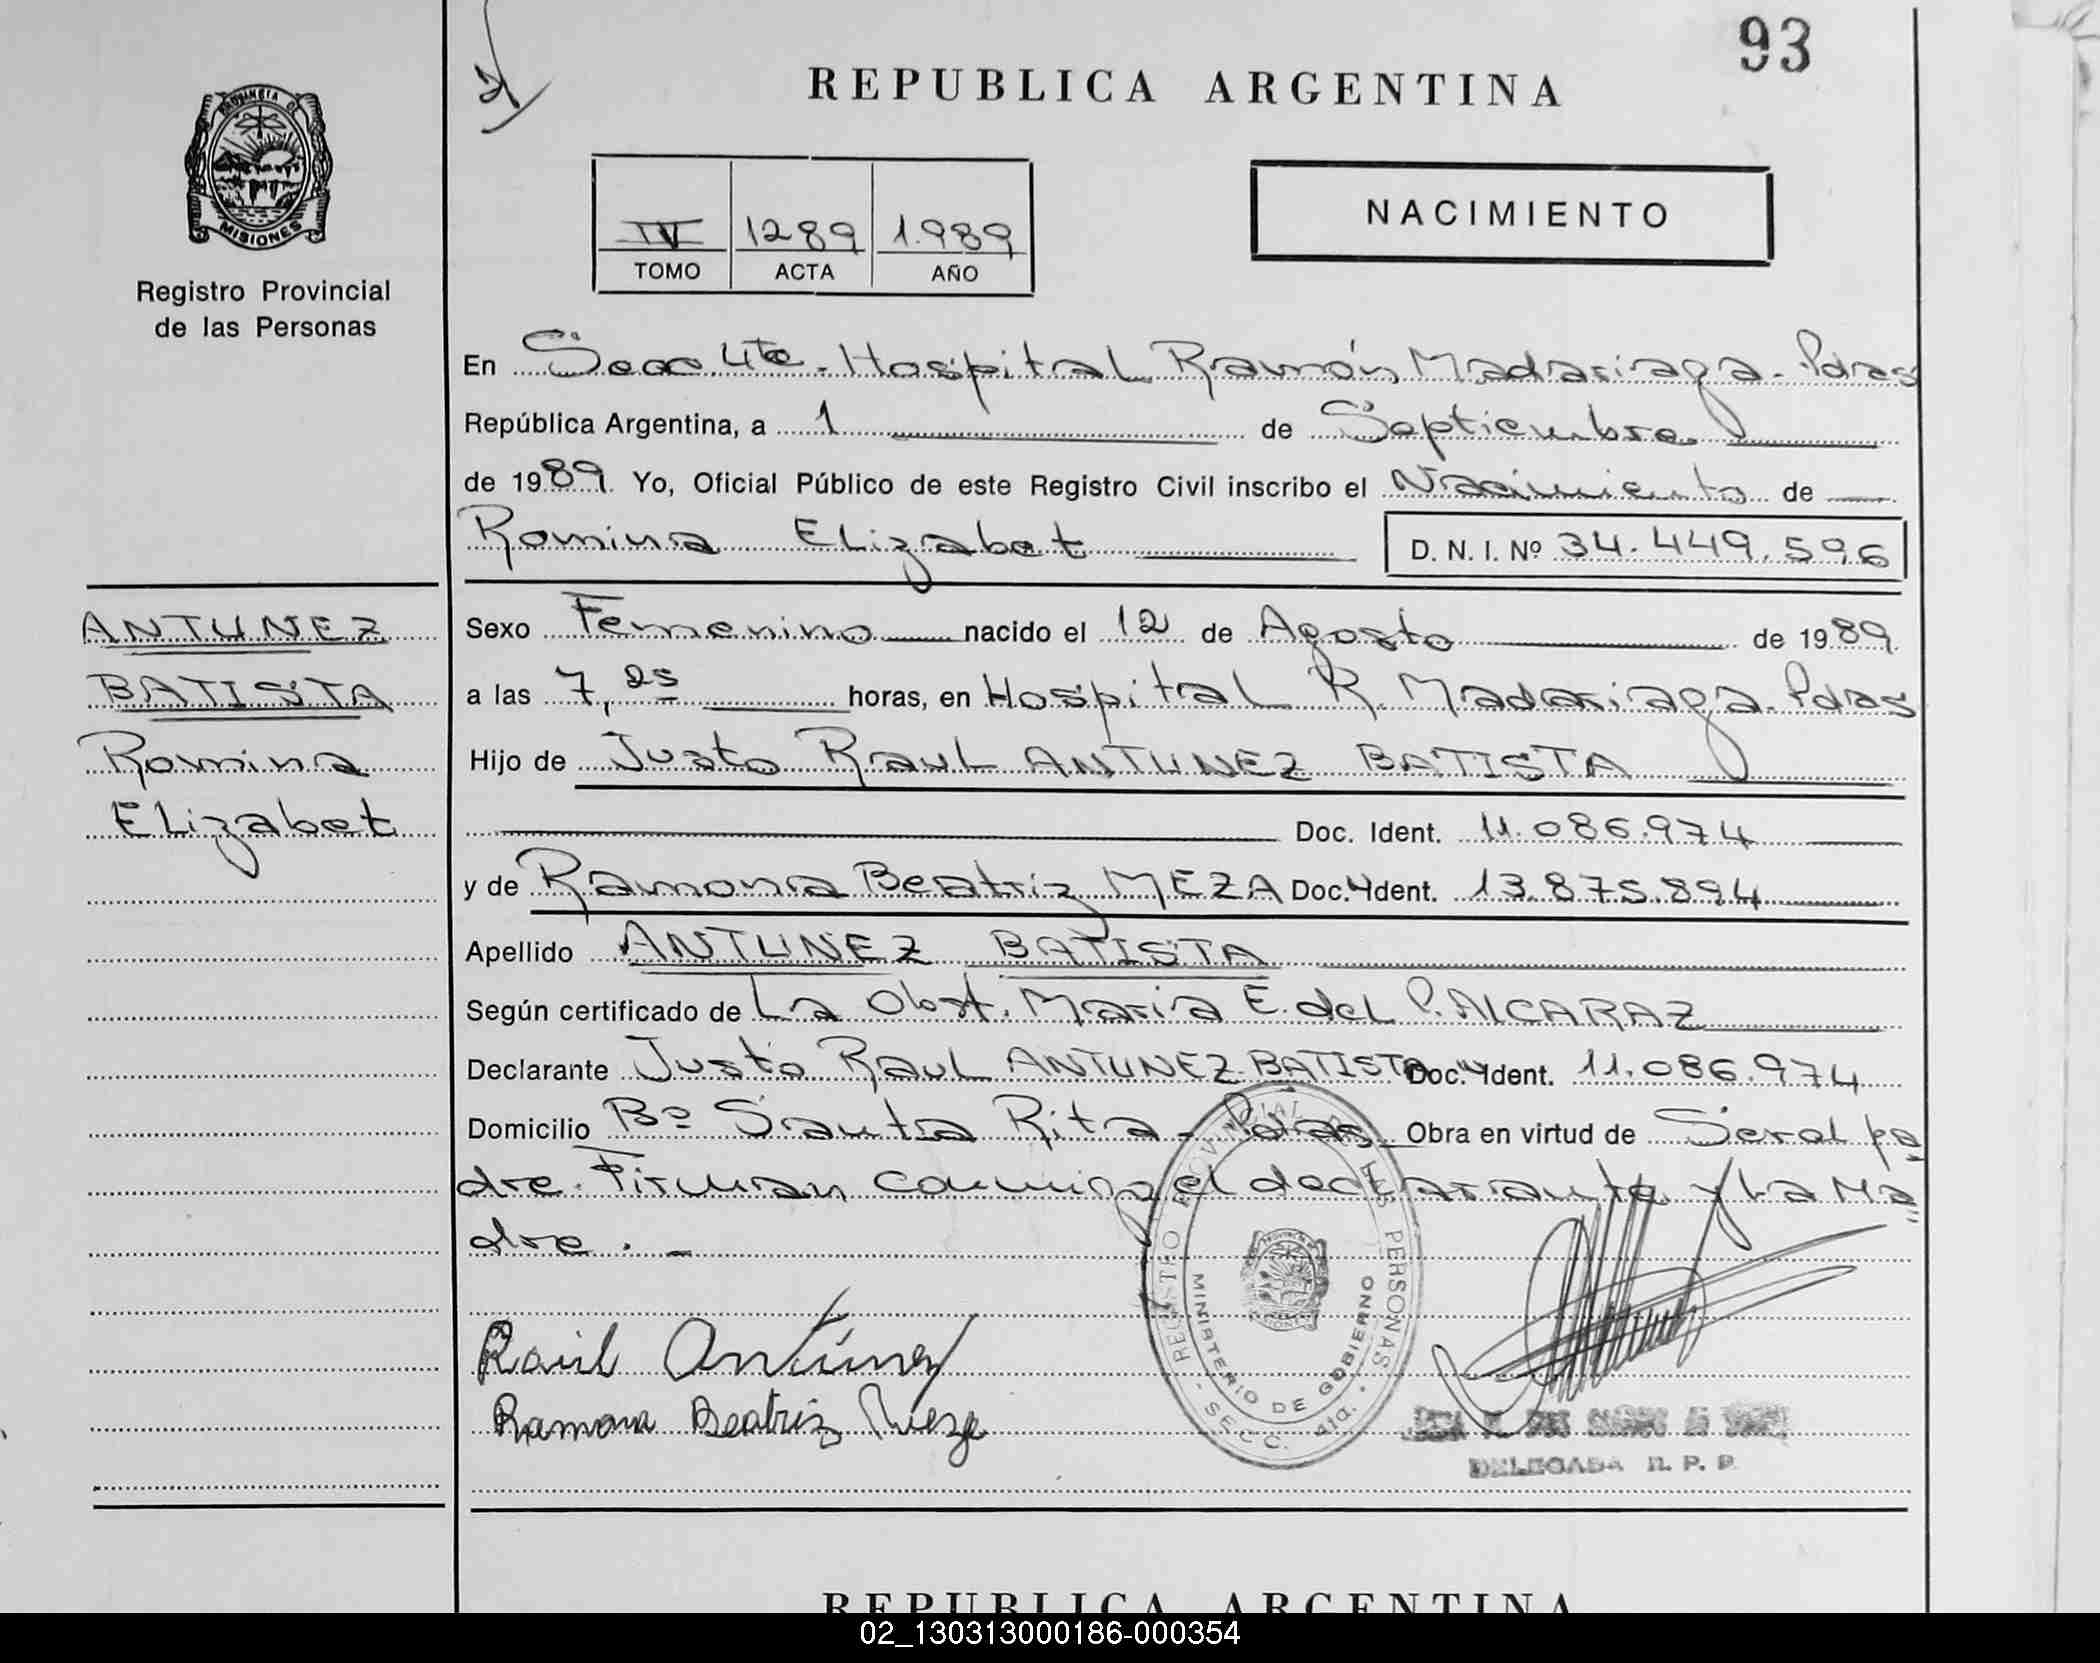 93
REPUBLICA ARGENTINA
PROVINCIA DE
MISIONES
Registro Provincial
de las Personas
IV 1289 1.989
TOMO ACTA AÑO
NACIMIENTO
En Secc 4ta. Hospital Ramón Madariaga. Pdas
República Argentina, a 1 de Septiembre
de 1989. Yo, Oficial Público de este Registro Civil inscribo el Nacimiento de
Romina Elizabet D. N. I. Nº 34.449.596
ANTUNEZ
BATISTA
Romina
Elizabet
Sexo Femenino nacido el 12 de Agosto de 1989.
a las 7,25 horas, en Hospital R. Madariaga. Pdas
Hijo de Justo Raul ANTUNEZ BATISTA
Doc. Ident. 11.086.974
y de Ramona Beatriz MEZA Doc. Ident. 13.875.894
Apellido ANTUNEZ BATISTA
Según certificado de La Obst. Maria E. del P. ALCARAZ
Declarante Justo Raul ANTUNEZ BATISTA Doc. Ident. 11.086.974
Domicilio Bº Santa Rita - Pdas Obra en virtud de Ser el pa
dre. Firman conmigo el declarante y La Ma
dre. -
Raúl Antúnez
Ramona Beatriz Meza
REGISTRO PROVINCIAL DE LAS PERSONAS
MINISTERIO DE GOBIERNO
SECC. 4ta.
DELEGADA R. P. P.
REPUBLICA ARGENTINA
02_130313000186-000354